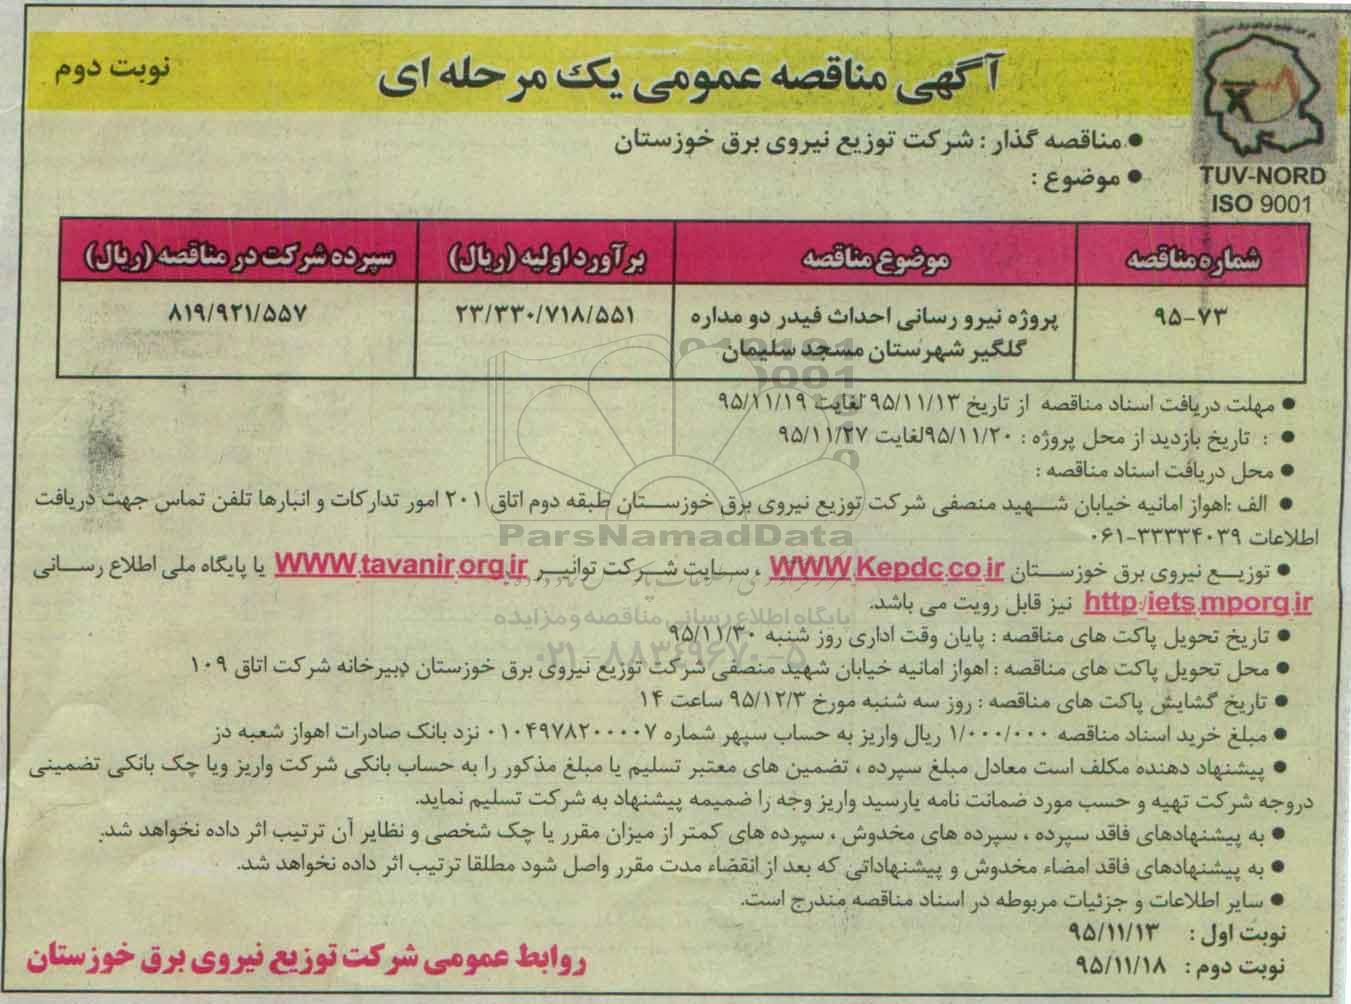 آگهی مناقصه عمومی یک مرحله ای
نوبت دوم
TUV-NORD
ISO 9001
● مناقصه گذار : شرکت توزیع نیروی برق خوزستان
● موضوع :
شماره مناقصه	موضوع مناقصه	برآورد اولیه (ریال)	سپرده شرکت در مناقصه (ریال)
۹۵-۷۳	پروژه نیرو رسانی احداث فیدر دو مداره	۲۳/۳۳۰/۷۱۸/۵۵۱	۸۱۹/۹۲۱/۵۵۷
گلگیر شهرستان مسجد سلیمان
● مهلت دریافت اسناد مناقصه از تاریخ ۹۵/۱۱/۱۳ لغایت ۹۵/۱۱/۱۹
● : تاریخ بازدید از محل پروژه : ۹۵/۱۱/۲۰لغایت ۹۵/۱۱/۲۷
● محل دریافت اسناد مناقصه :
● الف :اهواز امانیه خیابان شهید منصفی شرکت توزیع نیروی برق خوزستان طبقه دوم اتاق ۲۰۱ امور تدارکات و انبارها تلفن تماس جهت دریافت
اطلاعات ۳۳۳۳۴۰۳۹-۰۶۱
ParsNamadData
● توزیع نیروی برق خوزستان WWW.Kepdc.co.ir ، سایت شرکت توانیر WWW.tavanir.org.ir یا پایگاه ملی اطلاع رسانی
http:/iets.mporg.ir نیز قابل رویت می باشد.
پایگاه اطلاع رسانی مناقصه و مزایده
● تاریخ تحویل پاکت های مناقصه : پایان وقت اداری روز شنبه ۹۵/۱۱/۳۰
۰۲۱-۸۸۳۴۹۶۷۰-۵
● محل تحویل پاکت های مناقصه : اهواز امانیه خیابان شهید منصفی شرکت توزیع نیروی برق خوزستان دبیرخانه شرکت اتاق ۱۰۹
● تاریخ گشایش پاکت های مناقصه : روز سه شنبه مورخ ۹۵/۱۲/۳ ساعت ۱۴
● مبلغ خرید اسناد مناقصه ۱/۰۰۰/۰۰۰ ریال واریز به حساب سپهر شماره ۰۱۰۴۹۷۸۲۰۰۰۰۷ نزد بانک صادرات اهواز شعبه دز
● پیشنهاد دهنده مکلف است معادل مبلغ سپرده ، تضمین های معتبر تسلیم یا مبلغ مذکور را به حساب بانکی شرکت واریز ویا چک بانکی تضمینی
دروجه شرکت تهیه و حسب مورد ضمانت نامه یارسید واریز وجه را ضمیمه پیشنهاد به شرکت تسلیم نماید.
● به پیشنهادهای فاقد سپرده ، سپرده های مخدوش ، سپرده های کمتر از میزان مقرر یا چک شخصی و نظایر آن ترتیب اثر داده نخواهد شد.
● به پیشنهادهای فاقد امضاء مخدوش و پیشنهاداتی که بعد از انقضاء مدت مقرر واصل شود مطلقا ترتیب اثر داده نخواهد شد.
● سایر اطلاعات و جزئیات مربوطه در اسناد مناقصه مندرج است.
نوبت اول : ۹۵/۱۱/۱۳
نوبت دوم : ۹۵/۱۱/۱۸
روابط عمومی شرکت توزیع نیروی برق خوزستان